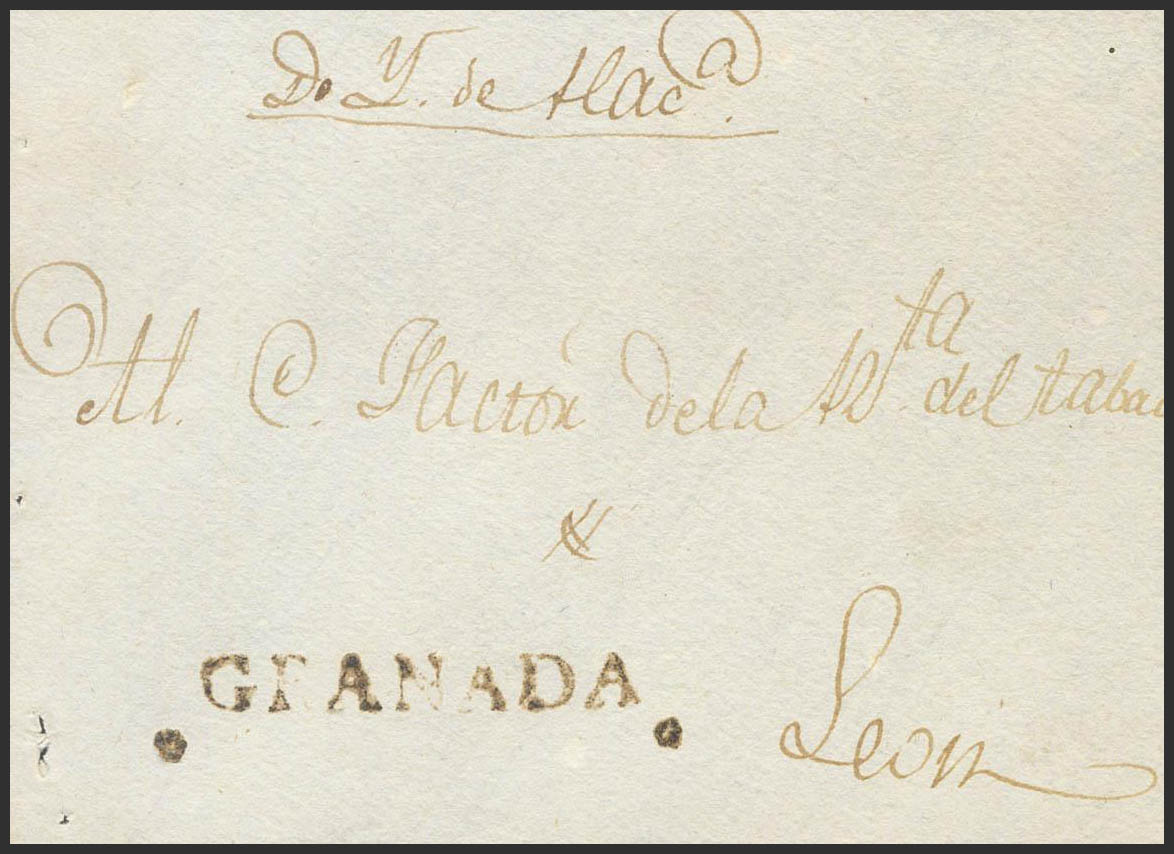 De Y. de Hac.a
Al. C. Factòr de la R.ta del tabac
GRANADA
Leon